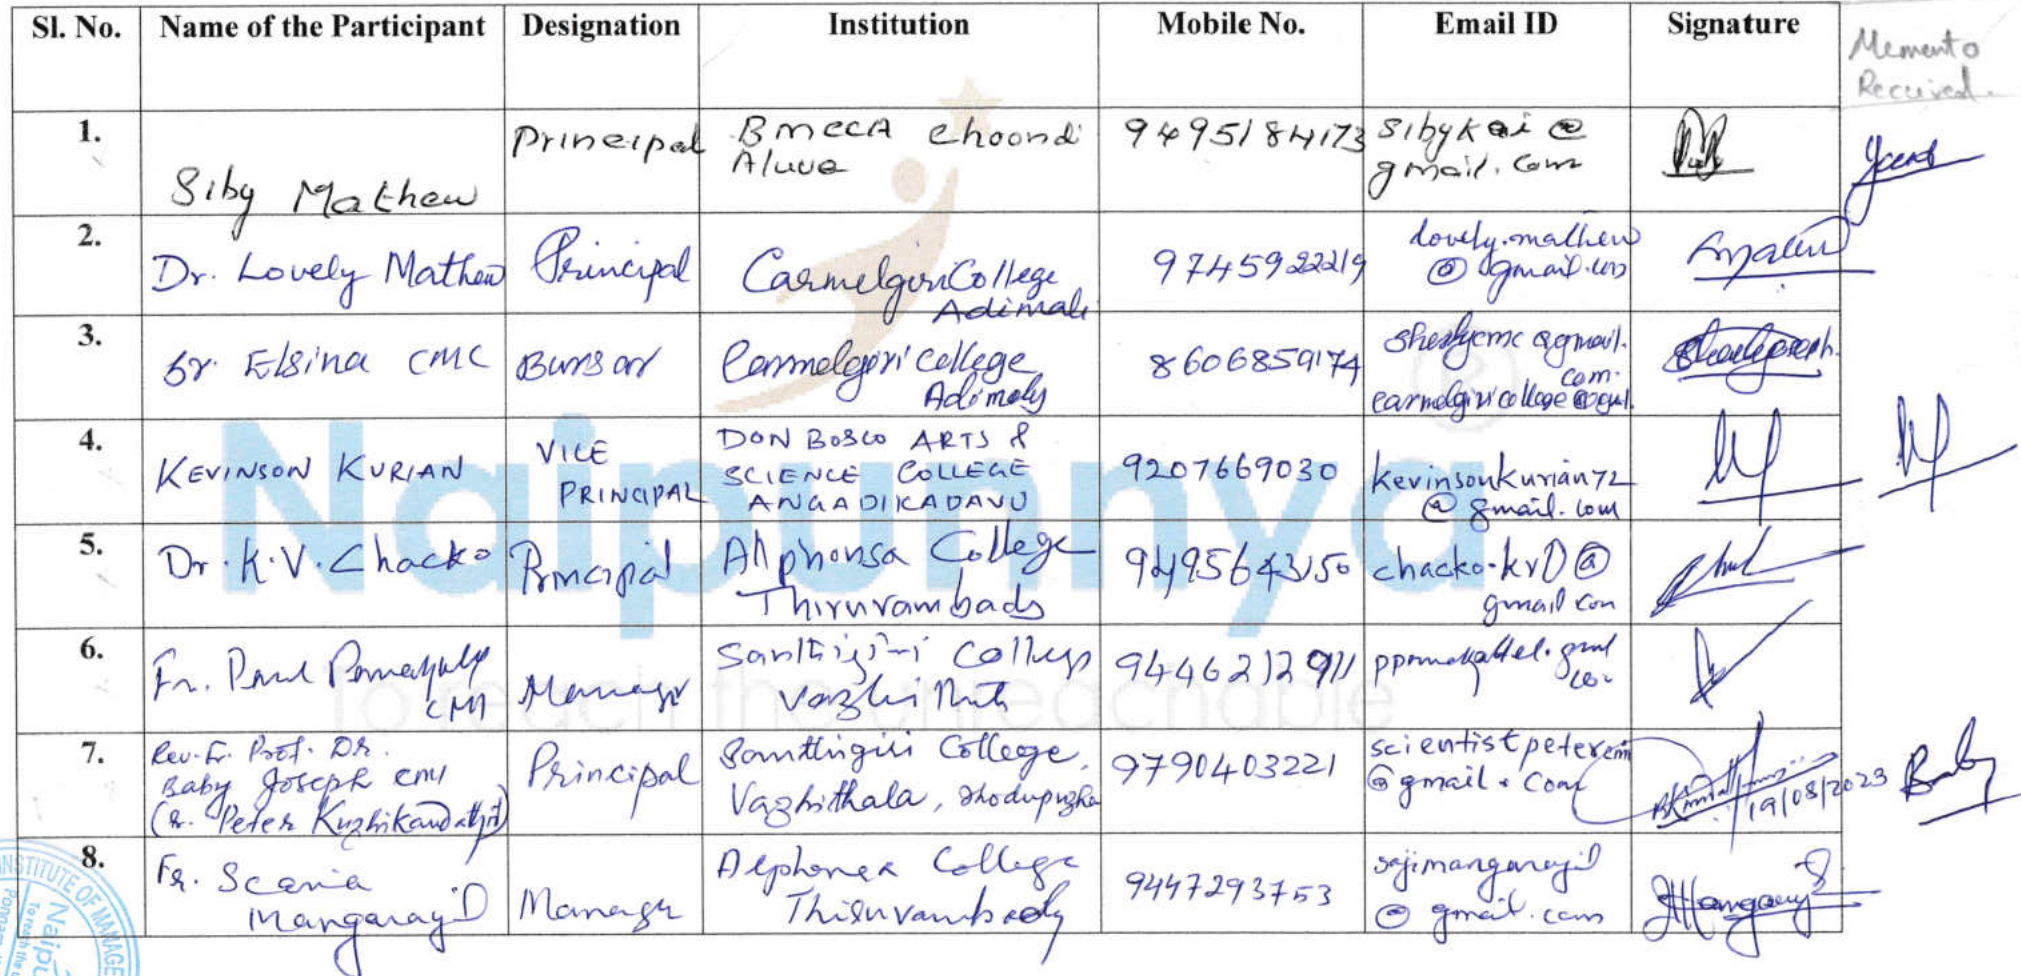 Sl. No. Name of the Participant Designation Institution Mobile No. Email ID Signature
Memento
Received.
1. Siby Mathew Principal BMECA Choondi
Aluva 9495184173 sibykai@
gmail.com
2. Dr. Lovely Mathew Principal Carmelgiri College
Adimali 9745922219 lovely.mathew
@gmail.com
3. Sr. Elsina CMC Bursar Carmelgiri College
Adimaly 8606859174 @gmail.
com.
carmelgiricollege
4. KEVINSON KURIAN VICE
PRINCIPAL DON BOSCO ARTS &
SCIENCE COLLEGE
ANGADIKADAVU 9207669030 kevinsonkurian72
@gmail.com
5. Dr. K.V. Chacko Principal Alphonsa College
Thiruvambady 9495643150 chacko.kv
@
gmail.com
6. Fr. Paul
CMI Manager Santhigiri College
Vazhithala 9446212911
7. Rev. Fr. Prof. Dr.
Baby Joseph CMI
Peter Principal Santhigiri College,
Vazhithala, Thodupuzha 9790403221 scientistpetercmi
@gmail.com 19/08/2023 Baby
8. Fr. Scaria
Mangarayil Manager Alphonsa College
Thiruvambady 9447293753 sajimangarayil
@gmail.com
Naipunnya
To reach the unreachable
INSTITUTE OF MANAGE